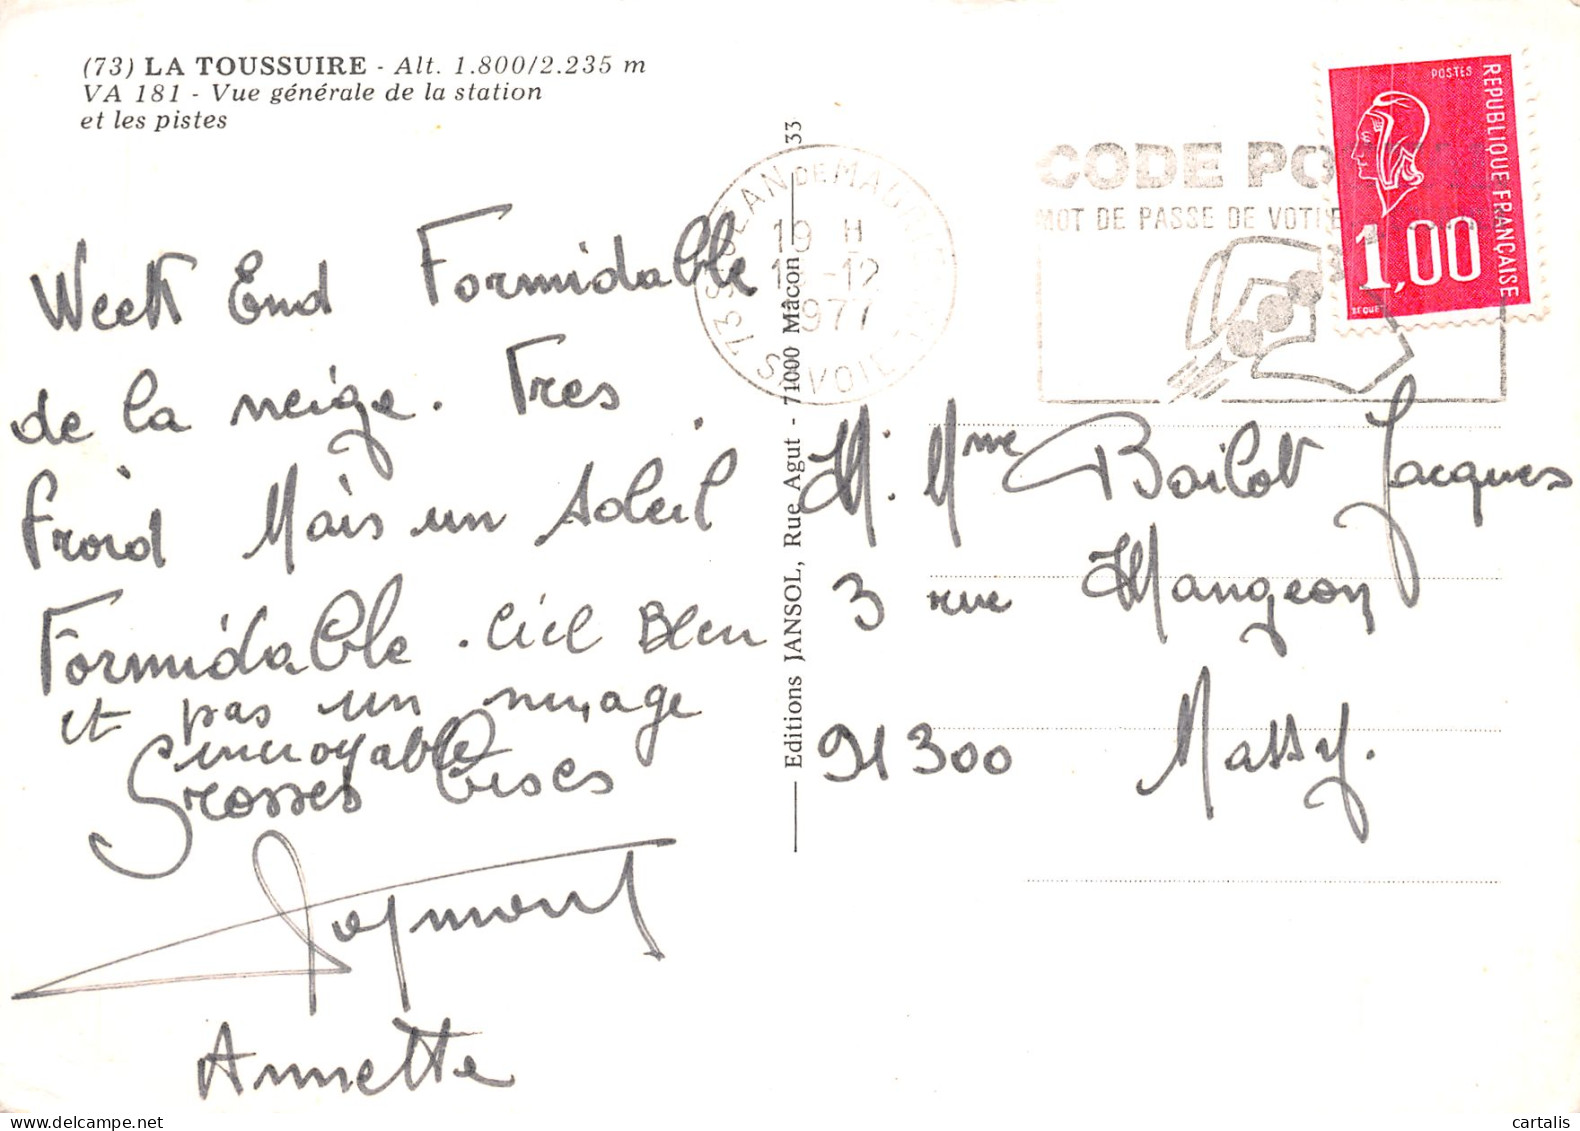 (73) LA TOUSSUIRE - Alt. 1.800/2.235 m
VA 181 - Vue générale de la station
et les pistes
Week End Formidable
de la neige. Tres
froid Mais un soleil
Formidable. Ciel Bleu
et pas un nuage
incroyable
Grosses Bises
Raymond
Annette
Editions JANSOL, Rue Agut - 71000 Mâcon 33
73 ST JEAN DE MAURIENNE
19 H
-12
1977
SAVOIE
CODE PO
MOT DE PASSE DE VOTRE
POSTES
REPUBLIQUE FRANÇAISE
1,00
M. Mme Bailot Jacques
3 rue Mangeon
91300 Massy.
cartalis